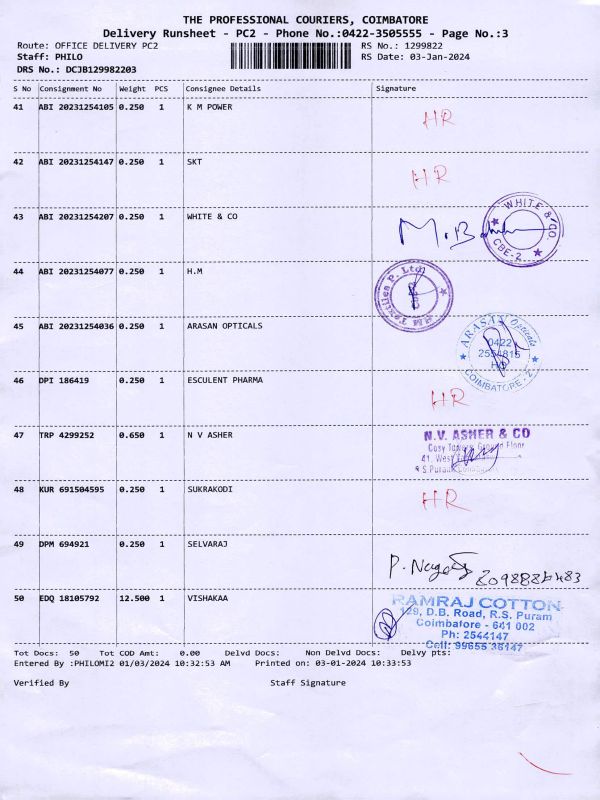 THE PROFESSIONAL COURIERS, COIMBATORE
Delivery Runsheet - PC2 - Phone No.:0422-3505555 - Page No.:3
Route: OFFICE DELIVERY PC2 RS No.: 1299822
Staff: PHILO RS Date: 03-Jan-2024
DRS No.: DCJB129982203
S No Consignment No Weight PCS Consignee Details Signature
41 ABI 20231254105 0.250 1 K M POWER HR
42 ABI 20231254147 0.250 1 SKT HR
43 ABI 20231254207 0.250 1 WHITE & CO M.B WHITE & CO. CBE-2
44 ABI 20231254077 0.250 1 H.M Textiles P. Ltd
45 ABI 20231254036 0.250 1 ARASAN OPTICALS ARASAN Opticals
0422
COIMBATORE - 2
46 DPI 186419 0.250 1 ESCULENT PHARMA HR
47 TRP 4299252 0.650 1 N V ASHER N.V. ASHER & CO
Cosy Towers Ground Floor
41, West
R.S.Puram
48 KUR 691504595 0.250 1 SUKRAKODI HR
49 DPM 694921 0.250 1 SELVARAJ P.
50 EDQ 18105792 12.500 1 VISHAKAA RAMRAJ COTTON
129, D.B. Road, R.S. Puram
Coimbatore - 641 002
Ph: 2544147
Cell: 99655 36147
Tot Docs: 50 Tot COD Amt: 0.00 Delvd Docs: Non Delvd Docs: Delvy pts:
Entered By :PHILOMI2 01/03/2024 10:32:53 AM Printed on: 03-01-2024 10:33:53
Verified By Staff Signature